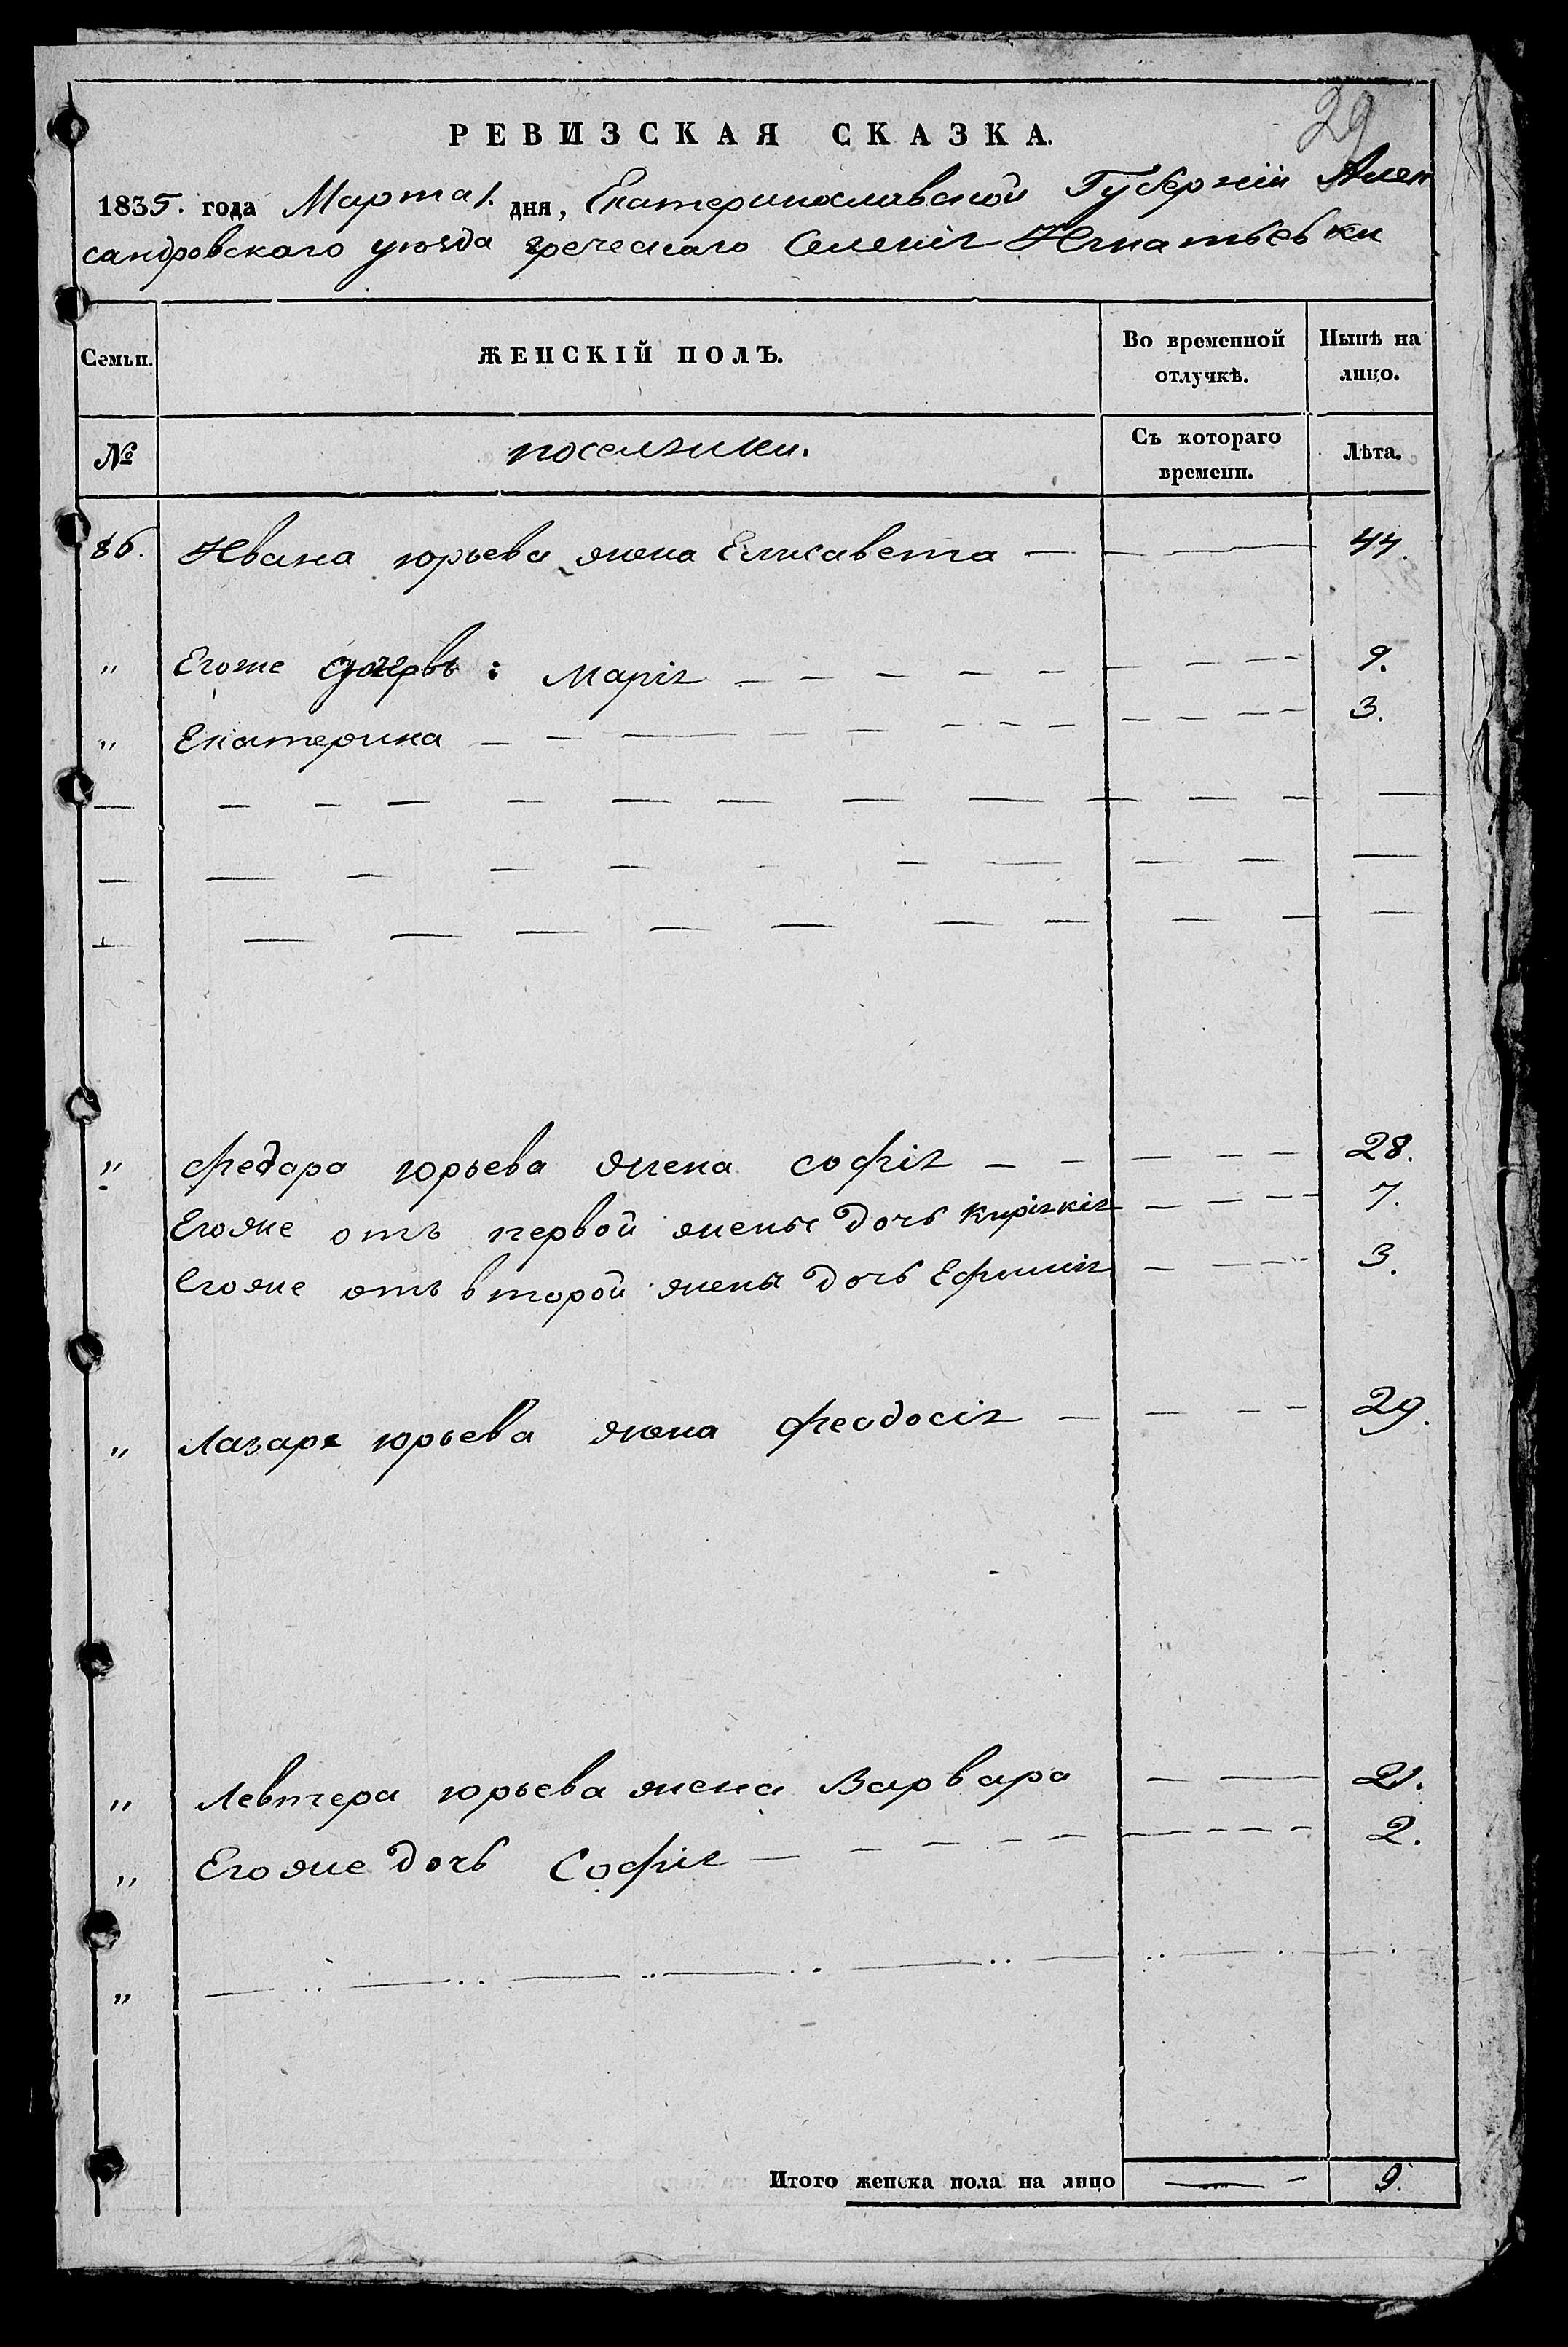 29
РЕВИЗСКАЯ СКАЗКА.
1835. года Марта 1. дня, Екатеринославской Губерніи Алек
сандровского уюзда греческаго Селенія Игнатьевки
Семьи. ЖЕНСКІЙ ПОЛЪ. Во временной отлучкѣ. Нынѣ на лицо.
№ поселяники. Съ котораго времени. Лѣта.
86. Ивана юрьева жена Елисавета — — — 44.
" Егоже дочерь: Марія — — — — — — — — 9.
" Екатерина — — — — — — — — — — 3.
" Федора юрьева жена софія — — — — — — 28.
Егоже отъ первой жены дочь Киріякія — — — — 7.
Егоже отъ второй жены дочь Ефимія — — — — 3.
" Лазаря юрьева жена Феодосія — — — — 29.
" Левтера юрьева жена Варвара — — 21.
" Егоже дочь Софія — — — — — — — — 2.
"
Итого женска пола на лицо — — 9.